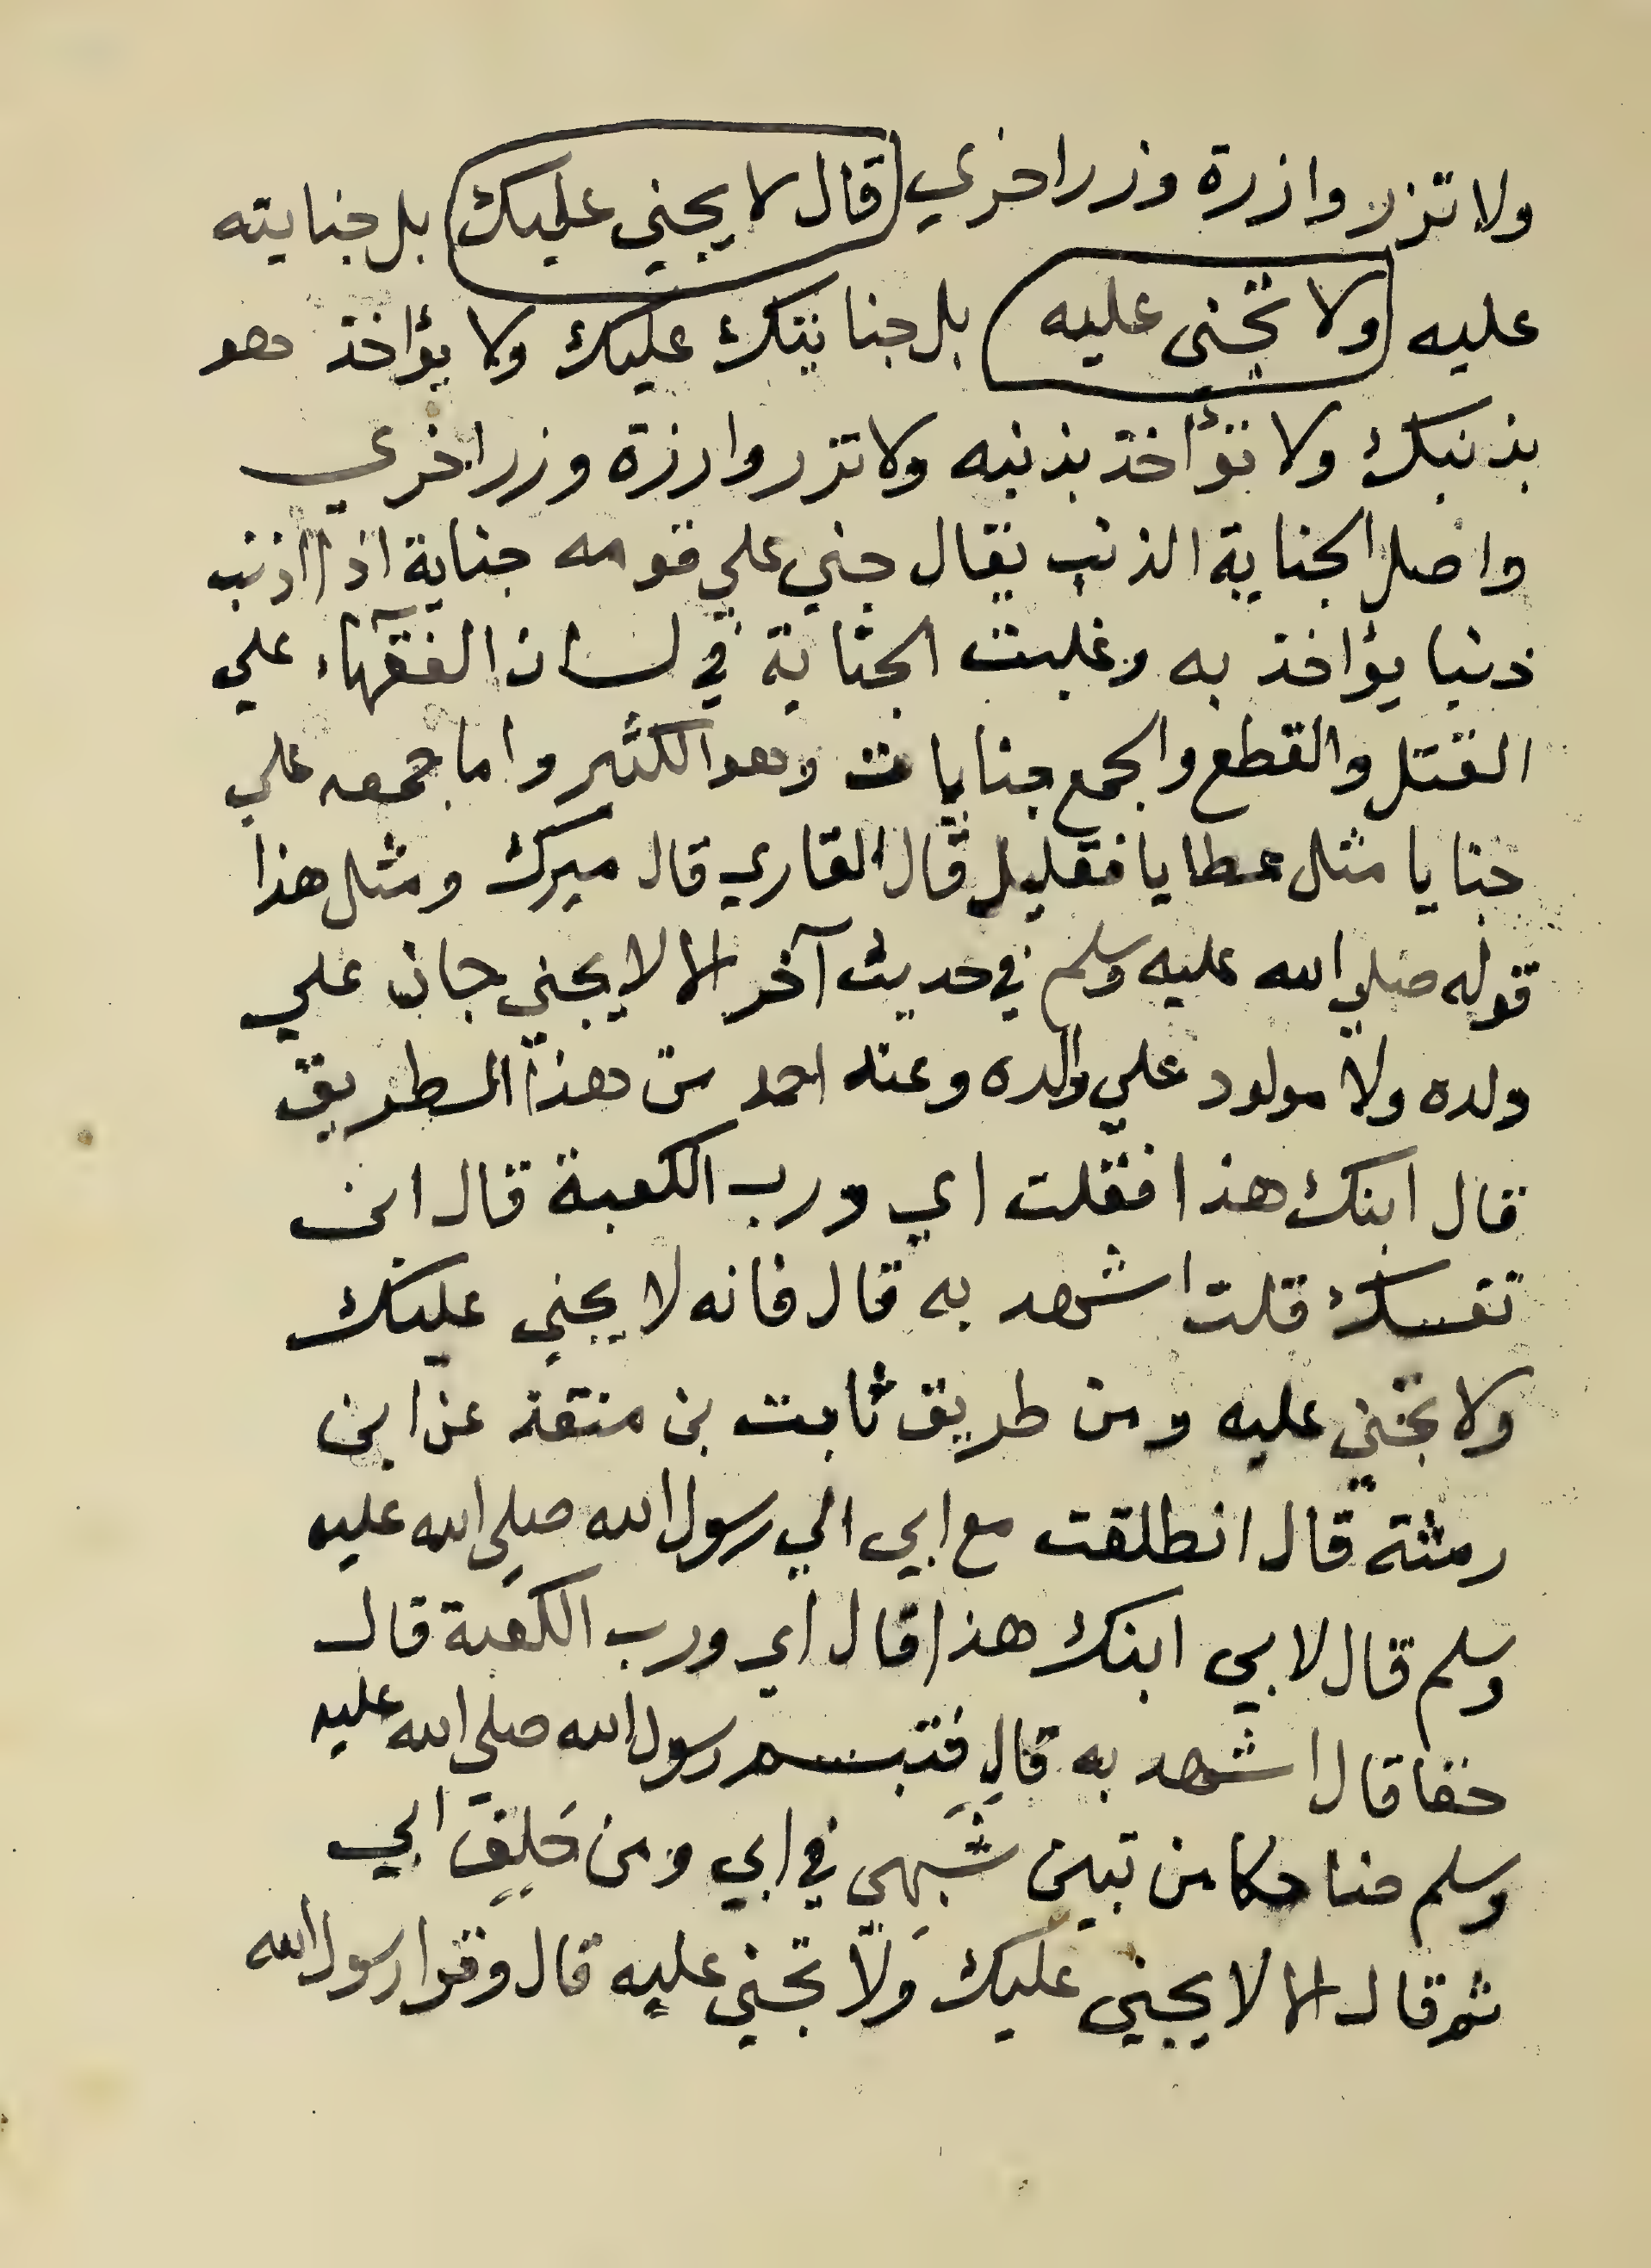 ولا تزر وازرة وزر اخري قال لا يجني عليك بل جنايته
عليه ولا تجنى عليه بل جنايتك عليك ولا يؤاخذ هو
بذنبك ولا تؤاخذ بذنبه ولا تزر وارزة وزر اخري
واصل الجناية الذنب يقال جني علي قومه جناية اذا اذنب
ذنبا يؤاخذ به وغلبت الجناية في لسان الفقهاء علي
القتل والقطع والجمع جنايات وهو الكثير واما جمعه علي
جنايا مثل عطايا فقليل قال القاري قال ميرك ومثل هذا
قوله صلي الله عليه وسلم في حديث آخر الا لا يجني جان علي
ولده ولا مولود علي والده وعند احمد من هذا الطريق
قال ابنك هذا فقلت اي ورب الكعبة قال ابن
نفسك قلت اشهد به قال فانه لا يجني عليك
ولا تجني عليه ومن طريق ثابت بن منقذ عن ابى
رمثة قال انطلقت مع ابي الي رسول الله صلي الله عليه
وسلم قال لابي ابنك هذا قال اي ورب الكعبة قال
حقا قال اشهد به قال فتبسم رسول الله صلي الله عليه
وسلم ضاحكا من تبين شَبَهِي في ابي ومن حَلِفِ ابي
ثم قال الا لا يجني عليك وَلَا تجني عليه قال وقرا رسول الله